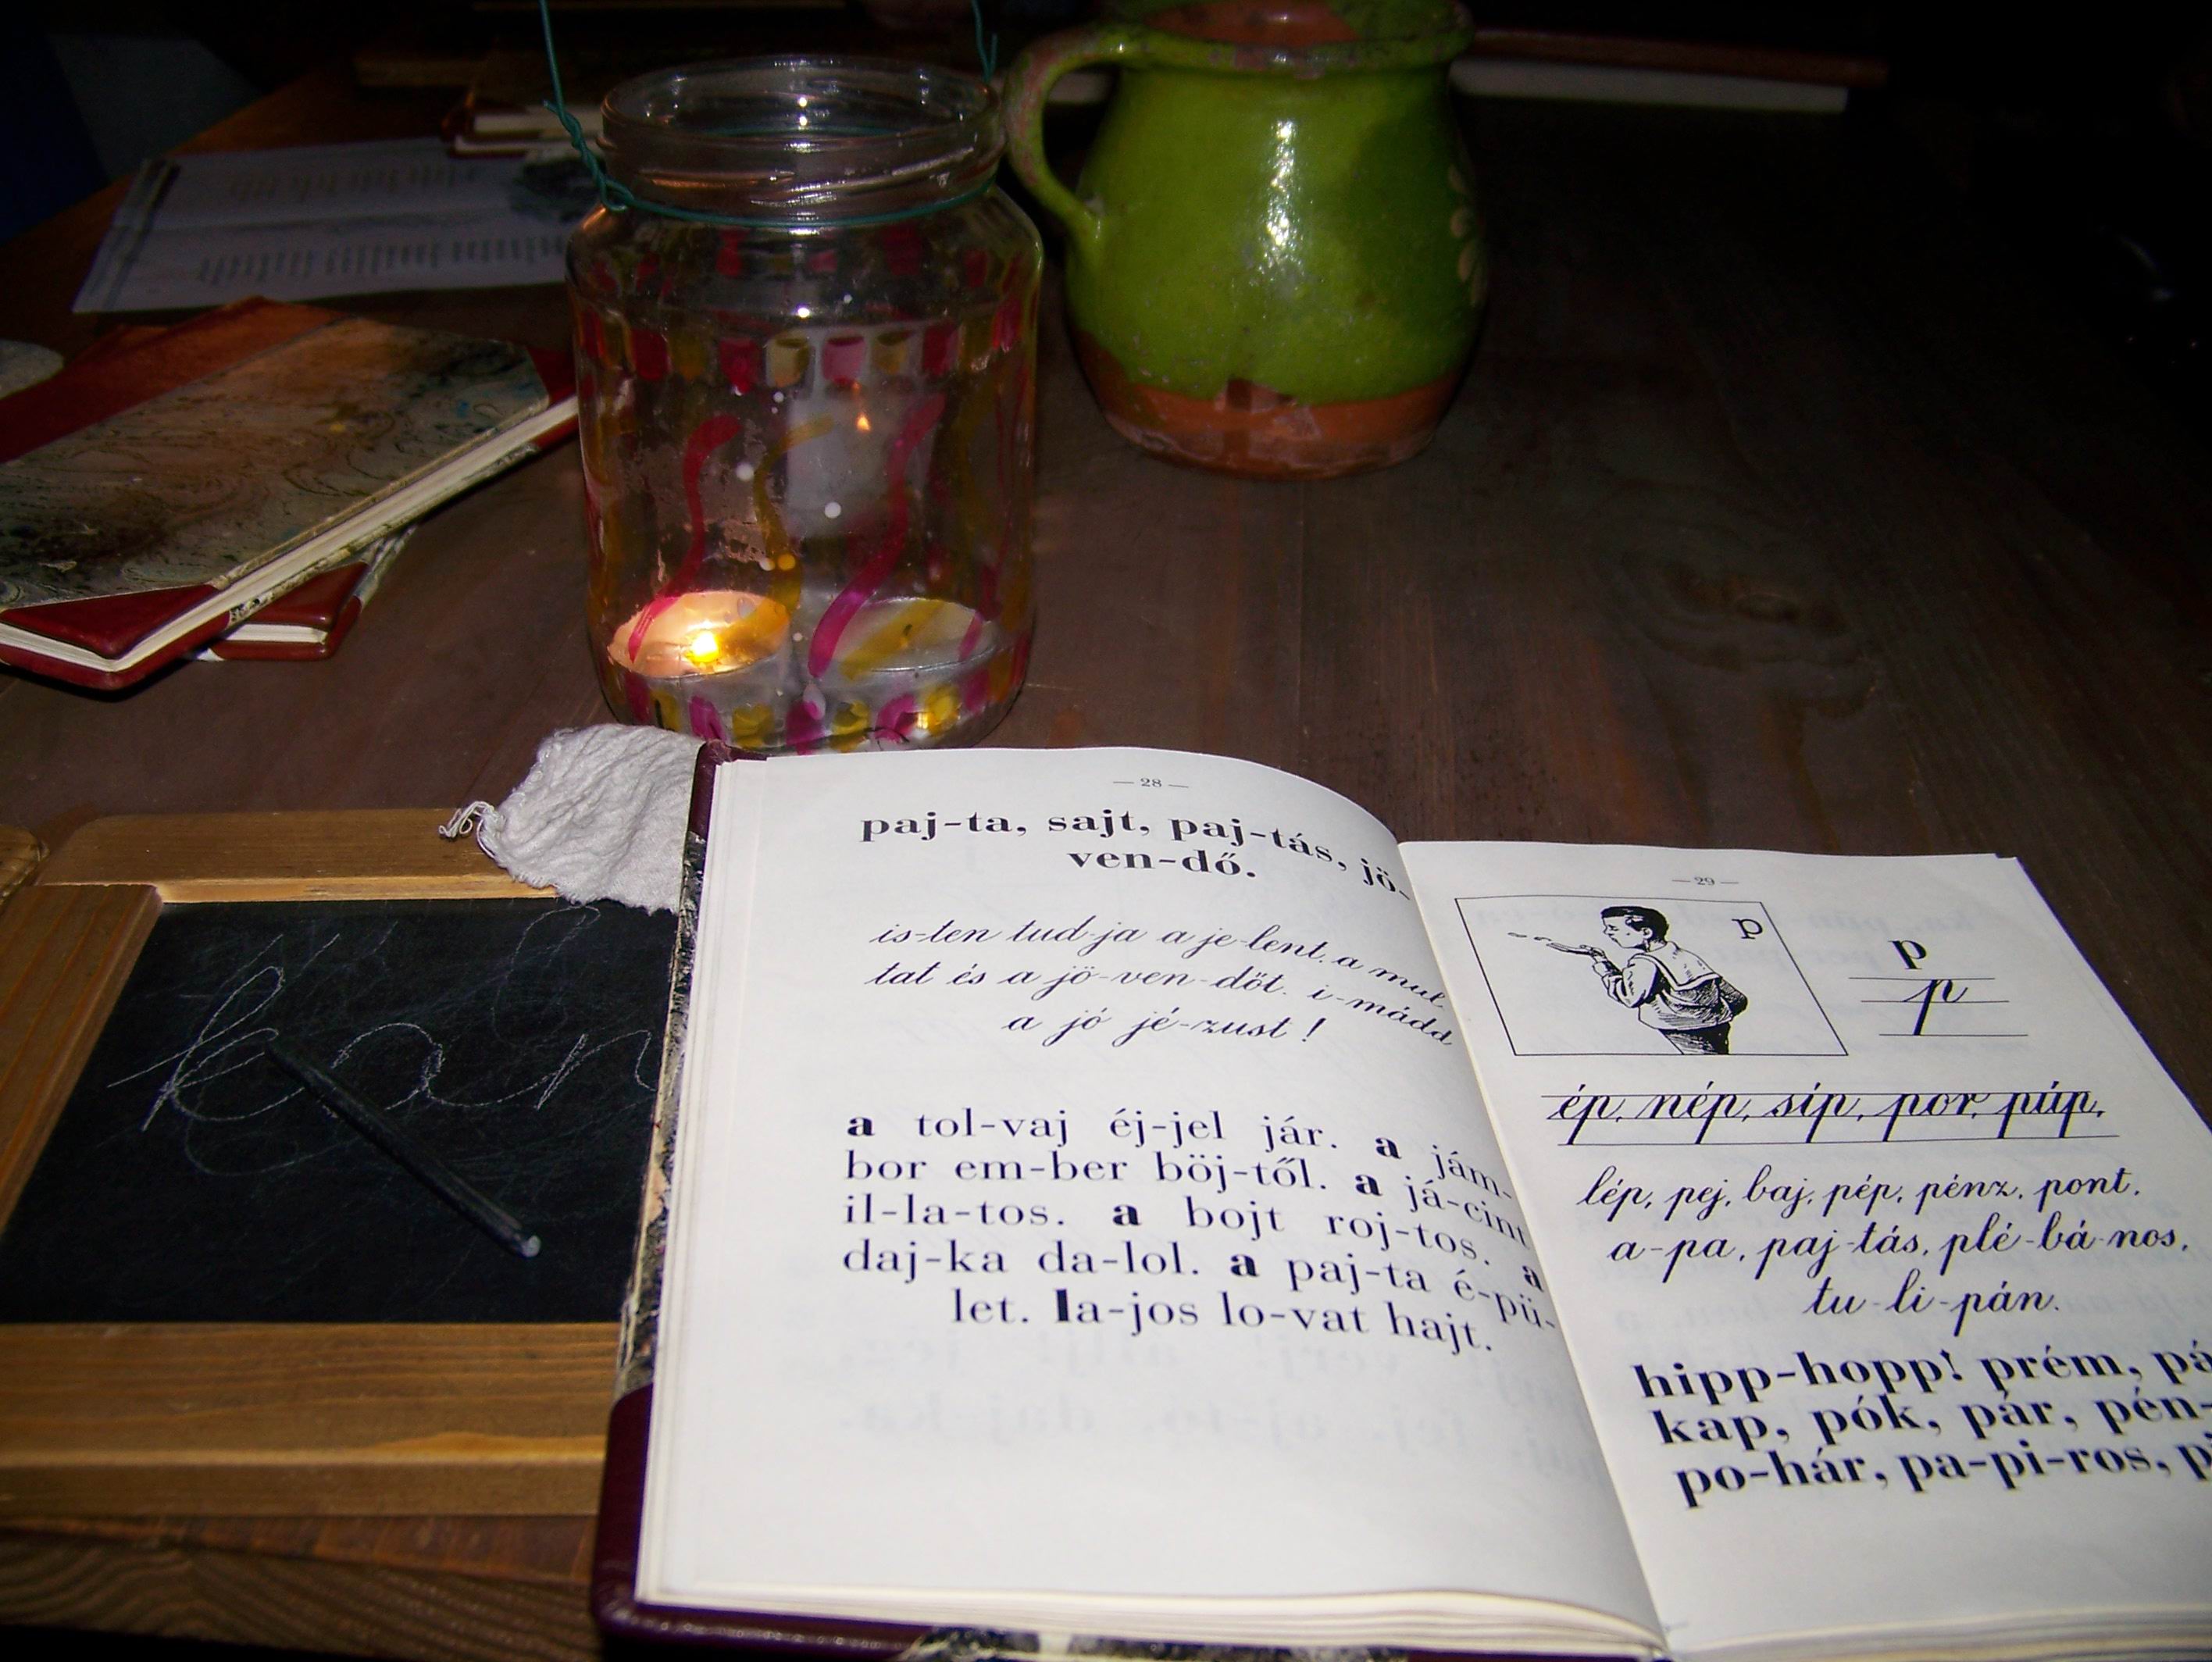 — 28 —
paj-ta, sajt, paj-tás, jö-
ven-dő.
is-ten tud-ja a je-lent, a mul-
tat és a jö-ven-dőt. i-mádd
a jó jé-zust!
a tol-vaj éj-jel jár. a jám-
bor em-ber böj-től. a já-cint
il-la-tos. a bojt roj-tos. a
daj-ka da-lol. a paj-ta é-pü-
let. la-jos lo-vat hajt.
— 29 —
p
p
p
ép, nép, síp, por, púp,
lép, pej, baj, pép, pénz, pont,
a-pa, paj-tás, plé-bá-nos,
tu-li-pán.
hipp-hopp! prém,
kap, pók, pár, pén-
po-hár, pa-pi-ros,